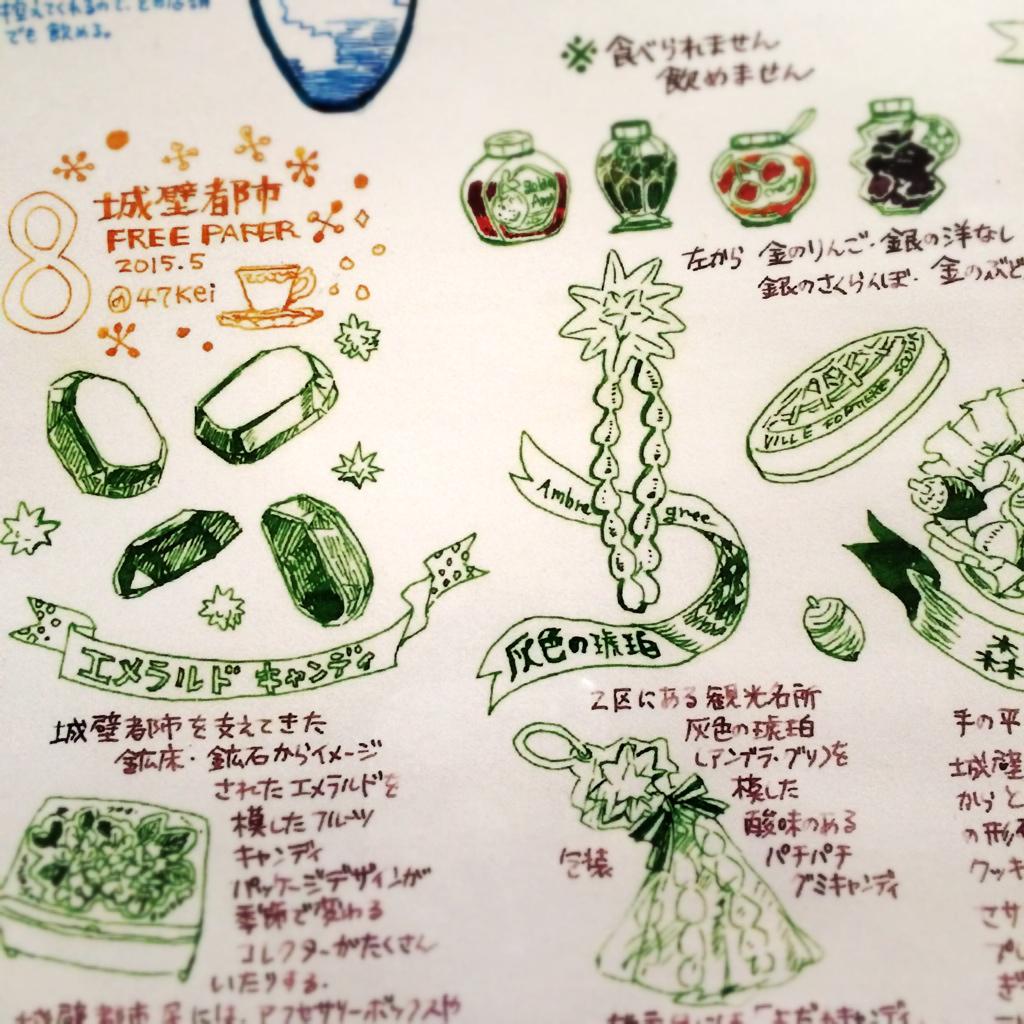 控えてくれるので、どの店頭
でも飲める。
※食べられません
飲めません
左から 金のりんご・銀の洋なし
銀のさくらんぼ・金のぶど
8
城壁都市
FREE PAPER
2015.5
@47Kei
VILLE FORTIERE SOUK
Ambre gree
エメラルドキャンディ
灰色の琥珀
森
城壁都市を支えてきた
鉱床・鉱石からイメージ
されたエメラルドを
模したフルーツ
キャンディ
パッケージデザインが
季節で変わる
コレクターがたくさん
いたりする。
城壁都市展には、アクセサリーボックスや
2区にある観光名所
灰色の琥珀
(アンブラ・グリ)を
模した
酸味のある
パチパチ
グミキャンディ
包装
手の平
城壁
からと
の形
クッキ
さサ
プレ